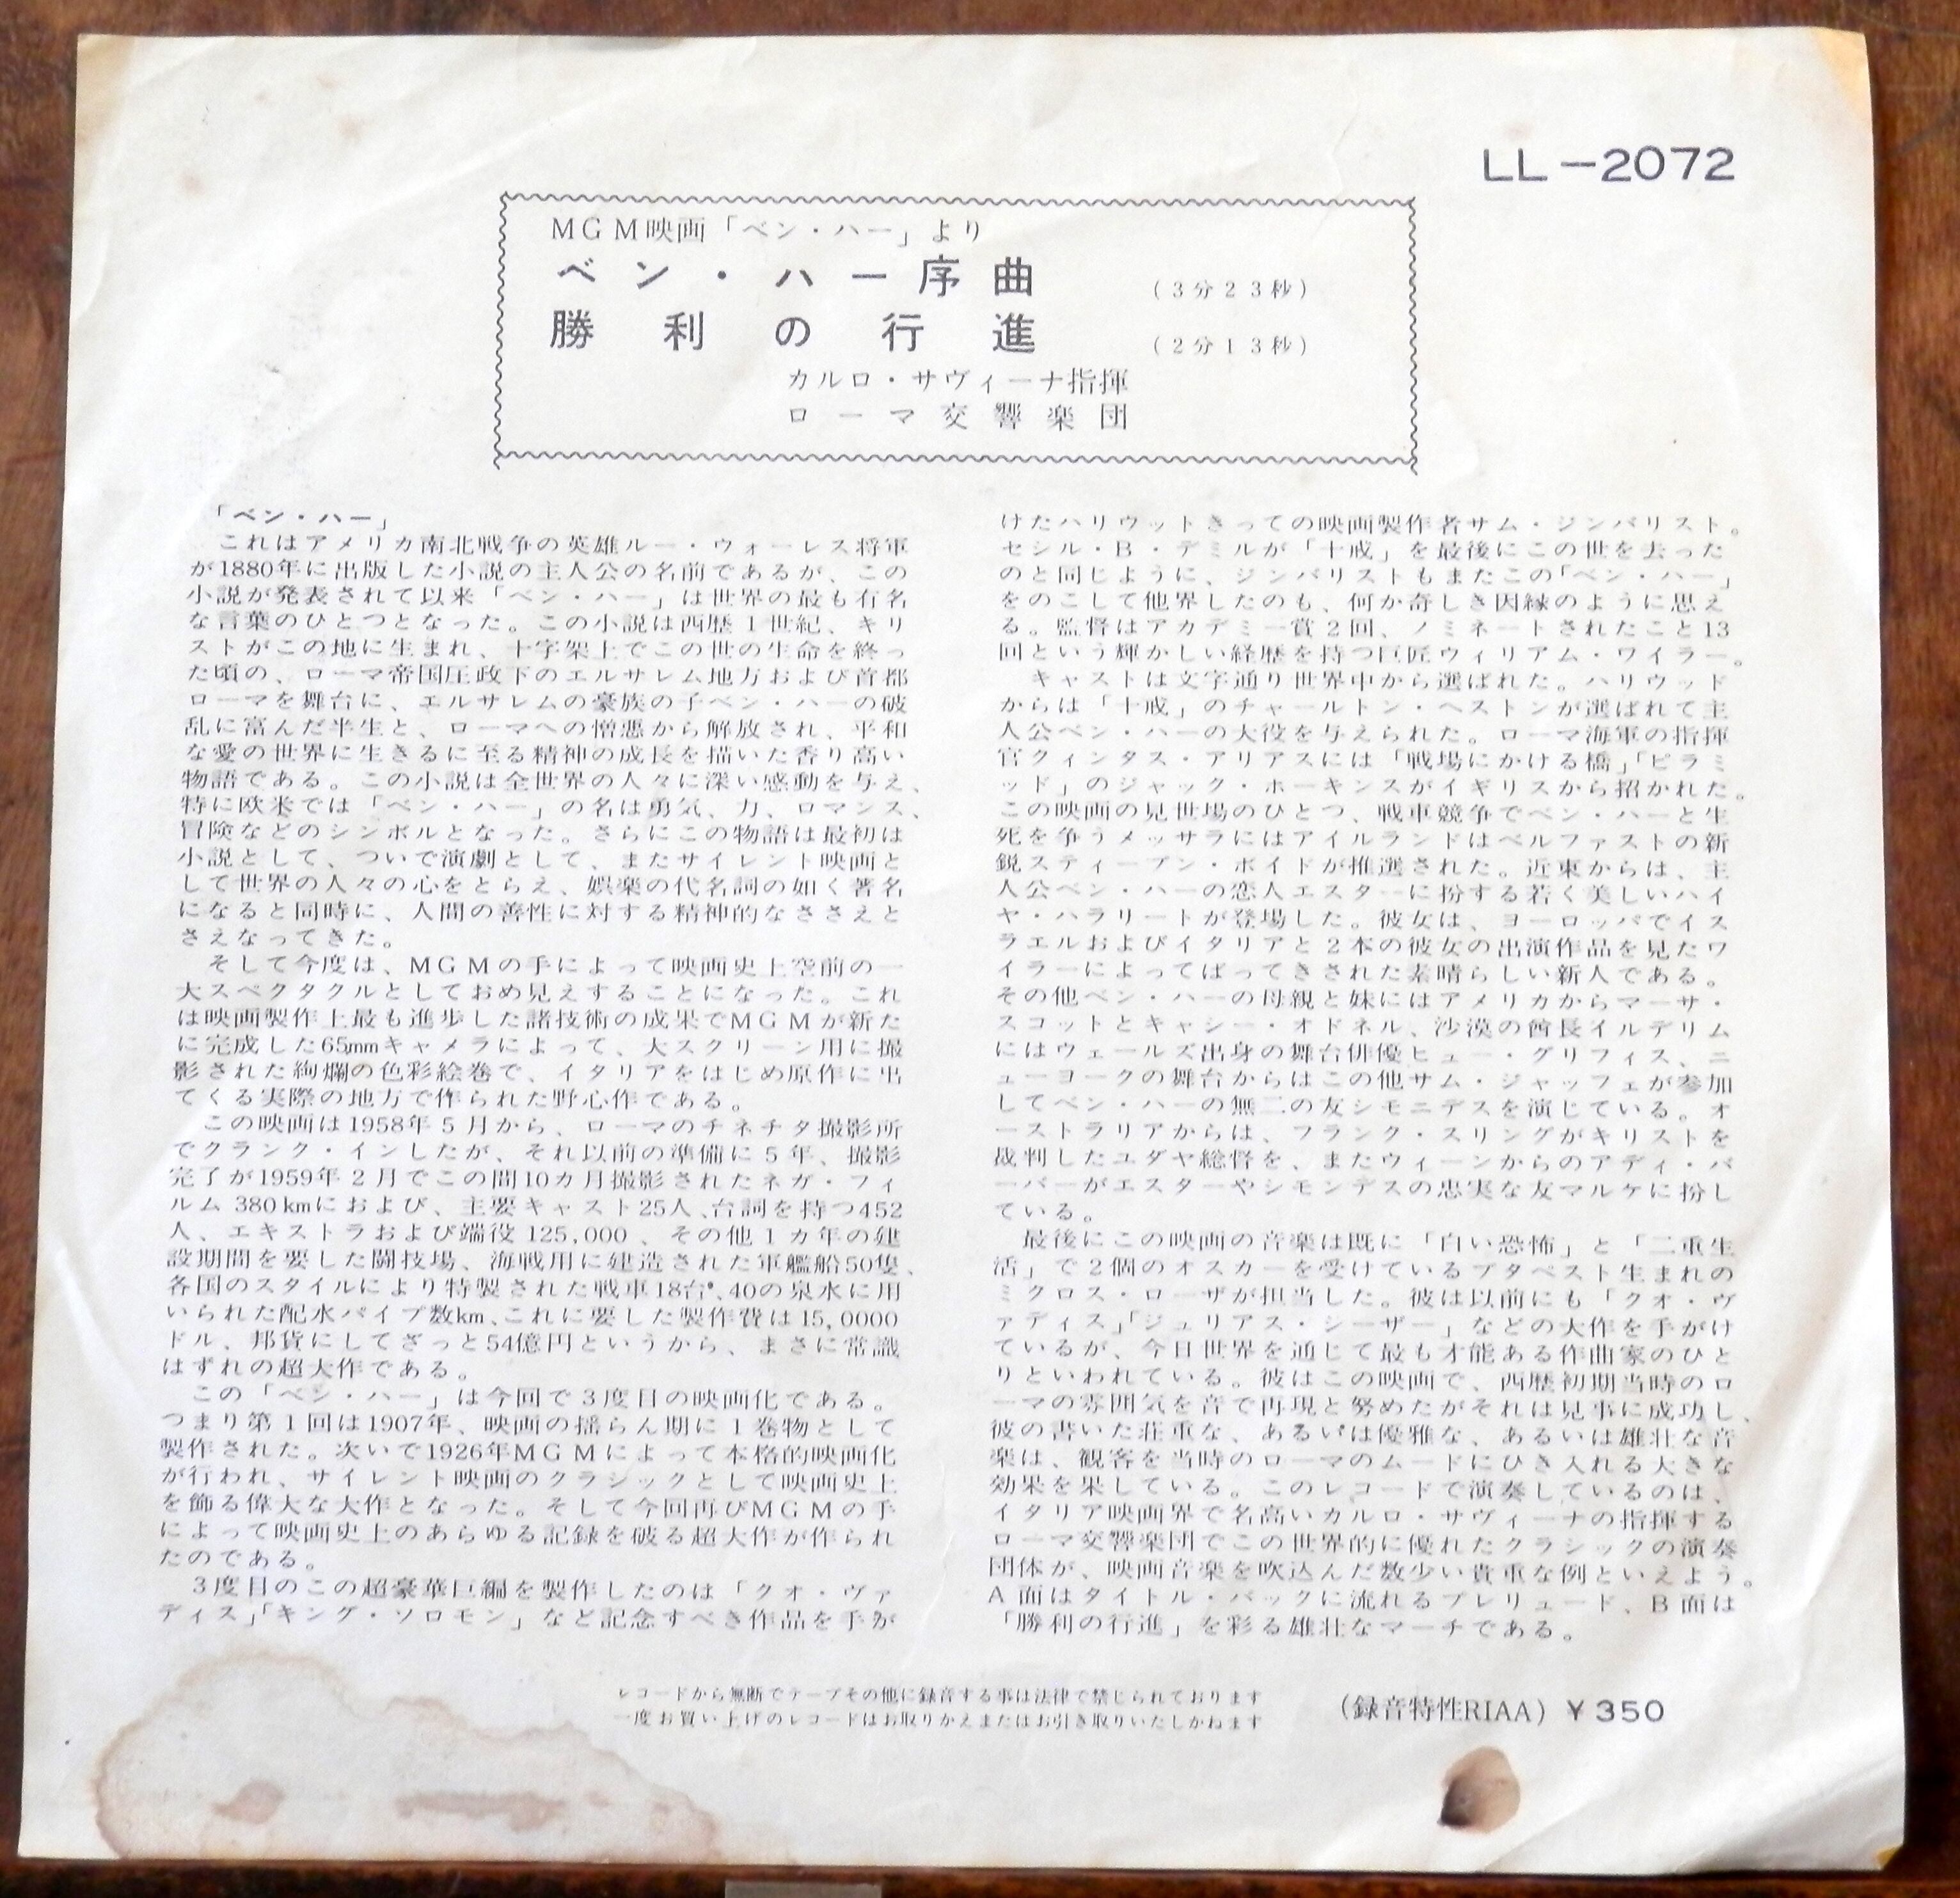 LL-2072
MGM映画「ベン・ハー」より
ベン・ハー序曲 (3分23秒)
勝利の行進 (2分13秒)
カルロ・サヴィーナ指揮
ローマ交響楽団
「ベン・ハー」
これはアメリカ南北戦争の英雄ルー・ウォーレス将軍
が1880年に出版した小説の主人公の名前であるが、この
小説が発表されて以来「ベン・ハー」は世界の最も有名
な言葉のひとつとなった。この小説は西歴1世紀、キリ
ストがこの地に生まれ、十字架上でこの世の生命を終っ
た頃の、ローマ帝国圧政下のエルサレム地方および首都
ローマを舞台に、エルサレムの豪族の子ベン・ハーの破
乱に富んだ半生と、ローマへの憎悪から解放され、平和
な愛の世界に生きるに至る精神の成長を描いた香り高い
物語である。この小説は全世界の人々に深い感動を与え、
特に欧米では「ベン・ハー」の名は勇気、力、ロマンス、
冒険などのシンボルとなった。さらにこの物語は最初は
小説として、ついで演劇として、またサイレント映画と
して世界の人々の心をとらえ、娯楽の代名詞の如く著名
になると同時に、人間の善性に対する精神的なささえと
さえなってきた。
そして今度は、MGMの手によって映画史上空前の一
大スペクタクルとしておめ見えすることになった。これ
は映画製作上最も進歩した諸技術の成果でMGMが新た
に完成した65mmキャメラによって、大スクリーン用に撮
影された絢爛の色彩絵巻で、イタリアをはじめ原作に出
てくる実際の地方で作られた野心作である。
この映画は1958年5月から、ローマのチネチタ撮影所
でクランク・インしたが、それ以前の準備に5年、撮影
完了が1959年2月でこの間10カ月撮影されたネガ・フィ
ルム380kmにおよび、主要キャスト25人、台詞を持つ452
人、エキストラおよび端役125,000、その他1カ年の建
設期間を要した闘技場、海戦用に建造された軍艦船50隻、
各国のスタイルにより特製された戦車18台、40の泉水に用
いられた配水パイプ数km、これに要した製作費は15,0000
ドル、邦貨にしてざっと54億円というから、まさに常識
はずれの超大作である。
この「ベン・ハー」は今回で3度目の映画化である。
つまり第1回は1907年、映画の揺らん期に1巻物として
製作された。次いで1926年MGMによって本格的映画化
が行われ、サイレント映画のクラシックとして映画史上
を飾る偉大な大作となった。そして今回再びMGMの手
によって映画史上のあらゆる記録を破る超大作が作られ
たのである。
3度目のこの超豪華巨編を製作したのは「クオ・ヴァ
ディス」「キング・ソロモン」など記念すべき作品を手が
けたハリウットきっての映画製作者サム・ジンバリスト。
セシル・B・デミルが「十戒」を最後にこの世を去った
のと同じように、ジンバリストもまたこの「ベン・ハー」
をのこして他界したのも、何か奇しき因縁のように思え
る。監督はアカデミー賞2回、ノミネートされたこと13
回という輝かしい経歴を持つ巨匠ウィリアム・ワイラー。
キャストは文字通り世界中から選ばれた。ハリウッド
からは「十戒」のチャールトン・ヘストンが選ばれて主
人公ベン・ハーの大役を与えられた。ローマ海軍の指揮
官クィンタス・アリアスには「戦場にかける橋」「ピラミ
ッド」のジャック・ホーキンスがイギリスから招かれた。
この映画の見世場のひとつ、戦車競争でベン・ハーと生
死を争うメッサラにはアイルランドはベルファストの新
鋭スティーブン・ボイドが推選された。近東からは、主
人公ベン・ハーの恋人エスターに扮する若く美しいハイ
ヤ・ハラリートが登場した。彼女は、ヨーロッパでイス
ラエルおよびイタリアと2本の彼女の出演作品を見たワ
イラーによってばってきされた素晴らしい新人である。
その他ベン・ハーの母親と妹にはアメリカからマーサ・
スコットとキャシー・オドネル、沙漠の酋長イルデリム
にはウェールズ出身の舞台俳優ヒュー・グリフィス、ニ
ューヨークの舞台からはこの他サム・ジャッフェが参加
してベン・ハーの無二の友シモニデスを演じている。オ
ーストラリアからは、フランク・スリングがキリストを
裁判したユダヤ総督を、またウィーンからのアディ・バ
ーバーがエスターやシモンデスの忠実な友マルケに扮し
ている。
最後にこの映画の音楽は既に「白い恐怖」と「二重生
活」で2個のオスカーを受けているブタペスト生まれの
ミクロス・ローザが担当した。彼は以前にも「クオ・ヴ
ァディス」「ジュリアス・シーザー」などの大作を手がけ
ているが、今日世界を通じて最も才能ある作曲家のひと
りといわれている。彼はこの映画で、西歴初期当時のロ
ーマの雰囲気を音で再現と努めたがそれは見事に成功し、
彼の書いた荘重な、あるいは優雅な、あるいは雄壮な音
楽は、観客を当時のローマのムードにひき入れる大きな
効果を果している。このレコードで演奏しているのは、
イタリア映画界で名高いカルロ・サヴィーナの指揮する
ローマ交響楽団でこの世界的に優れたクラシックの演奏
団体が、映画音楽を吹込んだ数少い貴重な例といえよう。
A面はタイトル・バックに流れるプレリュード、B面は
「勝利の行進」を彩る雄壮なマーチである。
レコードから無断でテープその他に録音する事は法律で禁じられております
一度お買い上げのレコードはお取りかえまたはお引き取りいたしかねます
(録音特性RIAA) ¥350